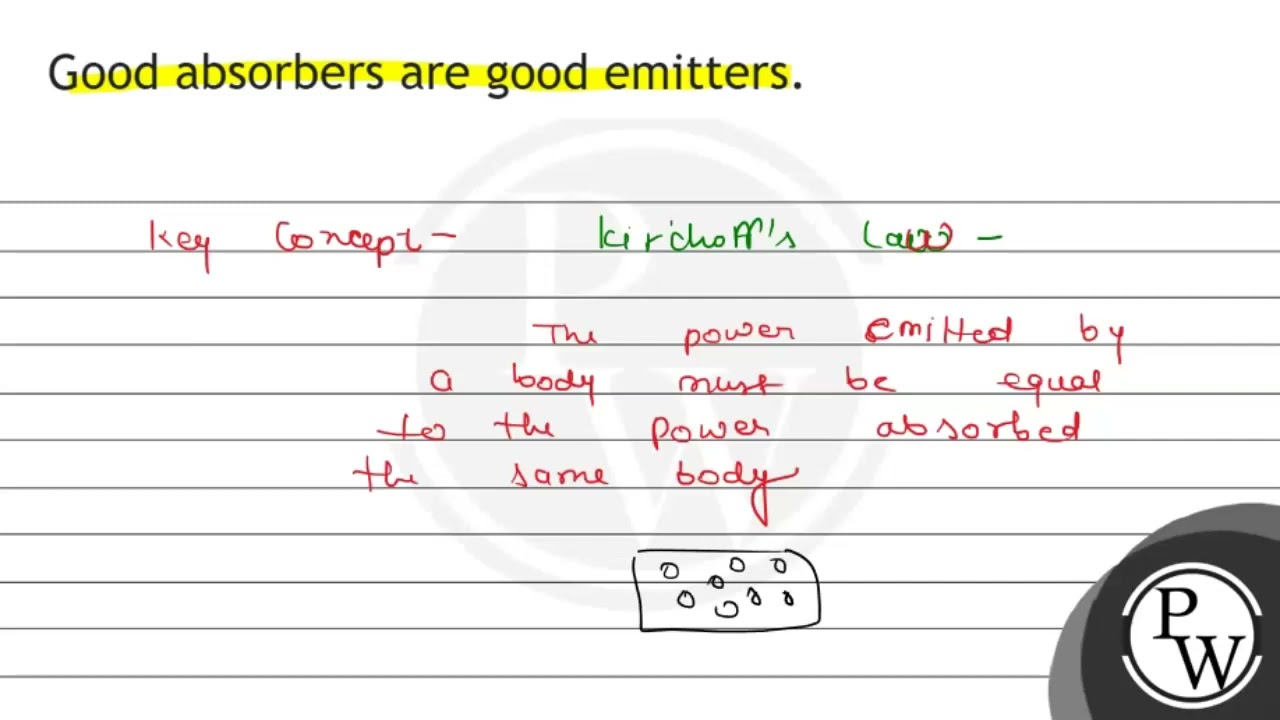 Good absorbers are good emitters.
Key Concept - Kirchoff's Law -
The power emitted by
a body must be equal
to the power absorbed
the same body
PW
PW